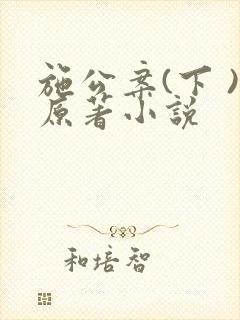 施公案(下)
原著小説
和培智